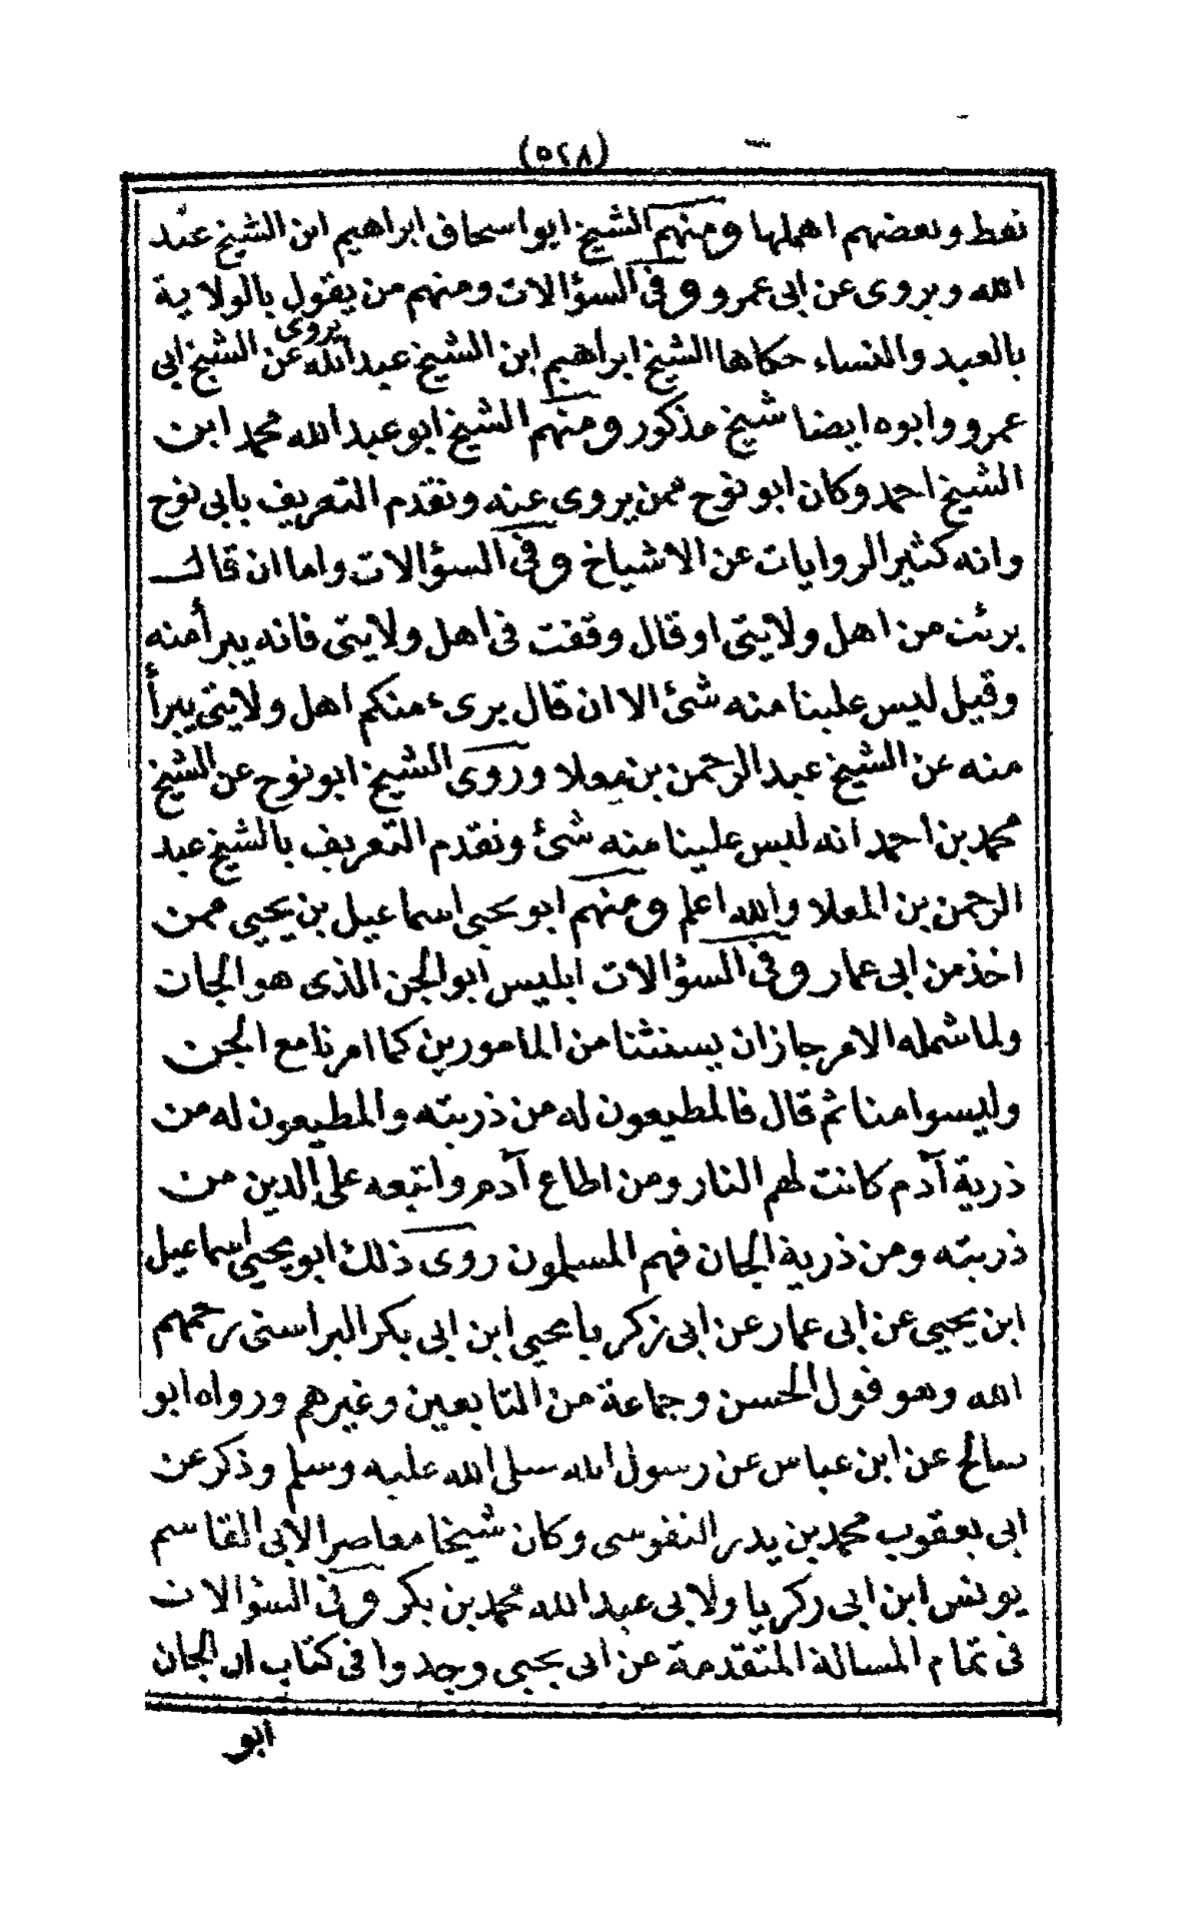 (٥٢٨)
نعط وبعضهم اهملها ومنهم الشيخ ابواسحاق ابراهيم ابن الشيخ عبد
الله ويروى عن ابى عمرو وفى السؤالات ومنهم من يقول بالولاية
بالعبد والنساء حكاها الشيخ ابراهيم ابن الشيخ عبدالله يروى عن الشيخ ابى
عمرو وابوه ايضا شيخ مذكور ومنهم الشيخ ابوعبدالله محمد ابن
الشيخ احمد وكان ابونوح ممن يروى عنه وتقدم التعريف بابى نوح
وانه كثير الروايات عن الاشياخ وفى السؤالات واما ان قال
برئت من اهل ولايتى اوقال وقفت فى اهل ولايتى فانه يبرأ منه
وقيل ليس علينا منه شئ الا ان قال برىء منكم اهل ولايتى يبرأ
منه عن الشيخ عبد الرحمن بن معلا وروى الشيخ ابونوح عن الشيخ
محمد بن احمد انه ليس علينا منه شئ وتقدم التعريف بالشيخ عبد
الرحمن بن المعلا والله اعلم ومنهم ابو يحيى اسماعيل بن يحيى ممن
اخذ من ابى عمار وفى السؤالات ابليس ابوالجن الذى هو الجان
ولما شمله الامر جاز ان يستثنا من المامورين كما امرنا مع الجن
وليسوا منا ثم قال فالمطيعون له من ذريته والمطيعون له من
ذرية آدم كانت لهم النار ومن اطاع آدم واتبعه على الدين من
ذريته ومن ذرية الجان فهم المسلمون روى ذلك ابو يحيى اسماعيل
ابن يحيى عن ابى عمار عن ابى زكريا يحيى ابن ابى بكر البراسنى رحمهم
الله وهو قول الحسن وجماعة من التابعين وغيرهم ورواه ابو
صالح عن ابن عباس عن رسول الله صلى الله عليه وسلم وذكر عن
ابى يعقوب محمد بن يدر النفوسى وكان شيخا معاصرا لابى القاسم
يونس ابن ابى زكريا ولابى عبدالله محمد بن بكر وفى السؤالات
فى تمام المسالة المتقدمة عن ابى يحيى وجدوا فى كتاب ان الجان
ابو